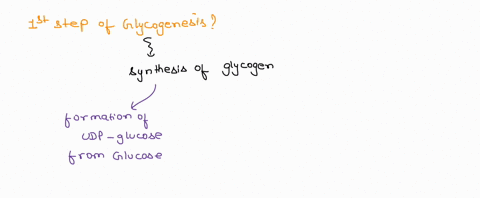 1st step of Glycogenesis?
synthesis of glycogen
formation of
UDP-glucose
from Glucose